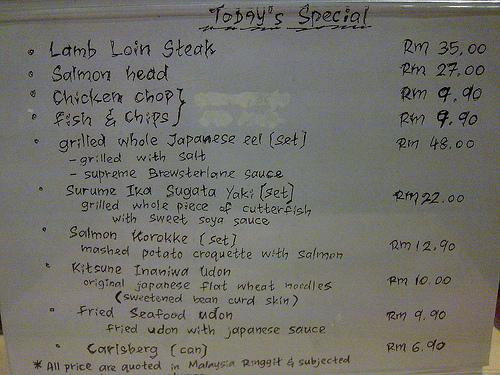 Today's Special
Lamb Loin Steak Rm 35.00
Salmon head Rm 27.00
Chicken chop } Rm 9.90
Fish & Chips } Rm 9.90
grilled whole Japanese eel [set] Rm 48.00
- grilled with salt
- supreme Brewsterlane sauce
Surume Ika Sugata Yaki [set] Rm 22.00
grilled whole piece of cutterfish
with sweet soya sauce
Salmon Korokke [set] Rm 12.90
mashed potato croquette with salmon
Kitsune Inaniwa Udon Rm 10.00
original japanese flat wheat noodles
(sweetened bean curd skin)
Fried Seafood udon Rm 9.90
fried udon with japanese sauce
Carlsberg [can] Rm 6.90
* All price are quoted in Malaysia Ringgit & subjected